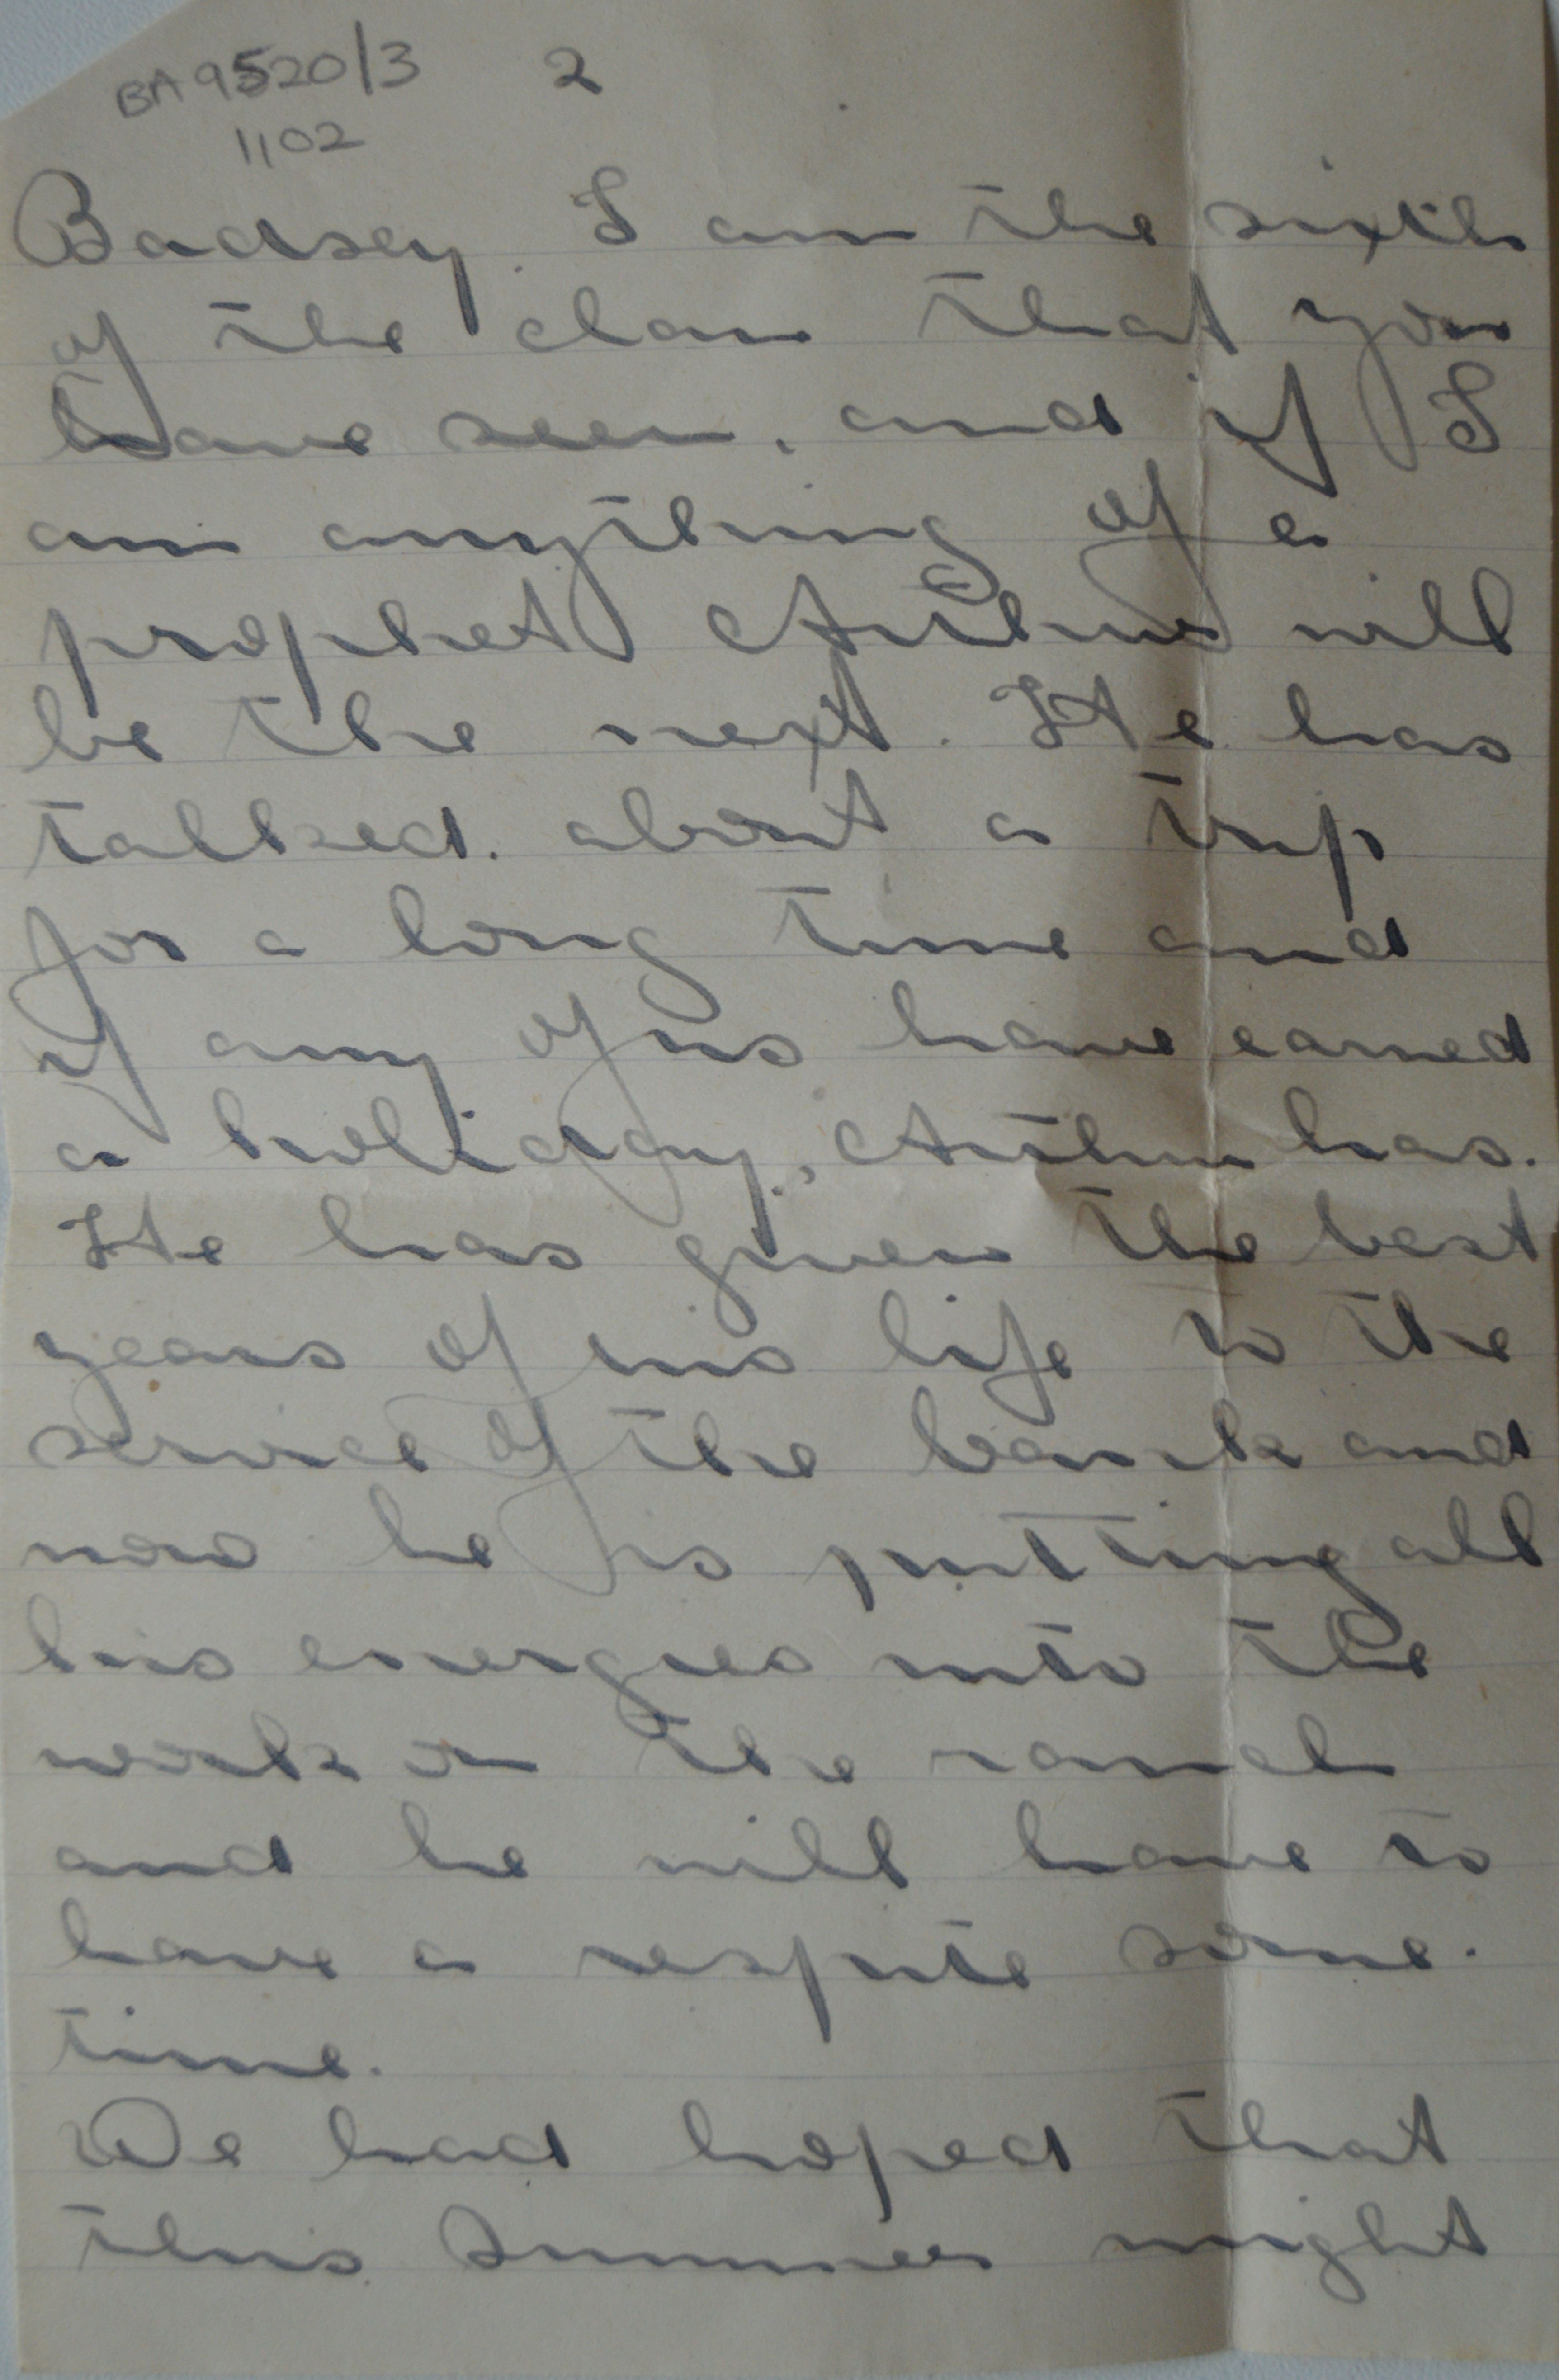 BA9520/3 2
1102
Badsey. I am the sixth
of the clan that you
have seen, and if I
am anything of a
prophet Arthur will
be the next. He has
talked. about a trip
for a long time and
if any of us have earned
a holiday, Arthur has.
He has given the best
years of his life to the
service of the bank and
now he is putting all
his energies into the
work on the ranch
and he will have to
have a respite some.
time.
We had hoped that
this Summer might